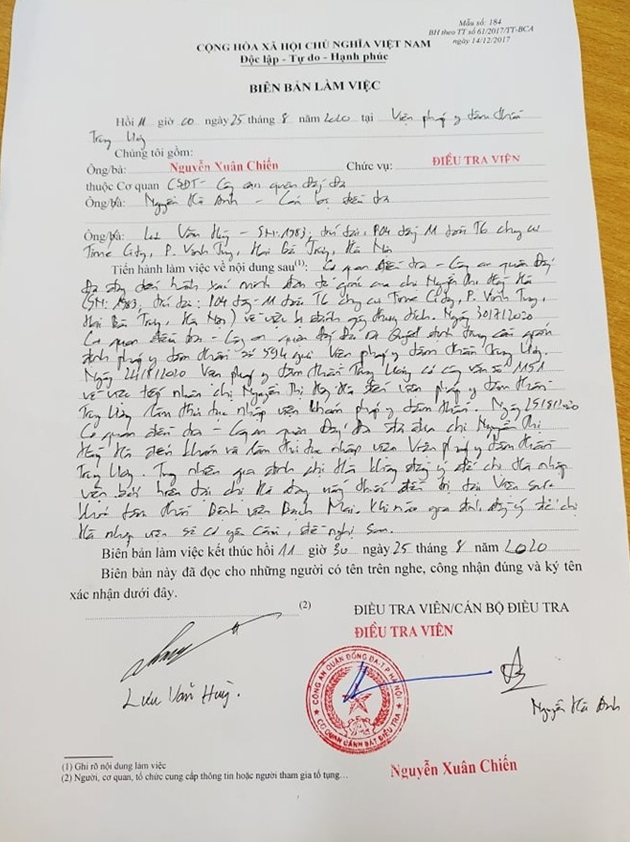 Mẫu số: 184
BH theo TT số 61/2017/TT-BCA
ngày 14/12/2017
CỘNG HÒA XÃ HỘI CHỦ NGHĨA VIỆT NAM
Độc lập - Tự do - Hạnh phúc
BIÊN BẢN LÀM VIỆC
Hồi 11 giờ 00 ngày 25 tháng 8 năm 2020 tại Viện pháp y tâm thần
Trung Ương
Chúng tôi gồm:
Ông/bà: Nguyễn Xuân Chiến Chức vụ: ĐIỀU TRA VIÊN
thuộc Cơ quan CSĐT - Công an quận Đống Đa
Ông/bà: Nguyễn Hà Anh - Cán bộ điều tra
Ông/bà: Lưu Văn Huy - SN: 1983; trú tại: P04 tầng 11 tòa T6 chung cư
Time City, P. Vĩnh Tuy, Hai Bà Trưng, Hà Nội
Tiến hành làm việc về nội dung sau(1): Cơ quan điều tra - Công an quận Đống
Đa đang tiến hành xác minh đơn tố giác của chị Nguyễn Thị Hà
(SN: 1983, trú tại: P04 tầng 11 tòa T6 chung cư Time City, P. Vĩnh Tuy,
Hai Bà Trưng, Hà Nội) về việc bị đánh gây thương tích. Ngày 30/7/2020
Cơ quan điều tra - Công an quận Đống Đa ra Quyết định trưng cầu giám
định pháp y tâm thần số 594 gửi Viện pháp y tâm thần Trung Ương.
Ngày 24/8/2020 Viện pháp y tâm thần Trung Ương có công văn số 1151
về việc tiếp nhận chị Nguyễn Thị Hà đến viện pháp y tâm thần
Trung Ương làm thủ tục nhập viện khám pháp y tâm thần. Ngày 25/8/2020
Cơ quan điều tra - Công an quận Đống Đa đã đưa chị Nguyễn Thị
Hà đến khám và làm thủ tục nhập viện Viện pháp y tâm thần
Trung Ương. Tuy nhiên gia đình chị Hà không đồng ý để chị Hà nhập
viện bởi hiện tại chị Hà đang uống thuốc điều trị tại Viện sức
khỏe tâm thần Bệnh viện Bạch Mai. Khi nào gia đình đồng ý để chị
Hà nhập viện sẽ có yêu cầu, đề nghị sau.
Biên bản làm việc kết thúc hồi 11 giờ 30 ngày 25 tháng 8 năm 2020
Biên bản này đã đọc cho những người có tên trên nghe, công nhận đúng và ký tên
xác nhận dưới đây.
(2) ĐIỀU TRA VIÊN/CÁN BỘ ĐIỀU TRA
ĐIỀU TRA VIÊN
CÔNG AN QUẬN ĐỐNG ĐA-T.P HÀ NỘI
CƠ QUAN CẢNH SÁT ĐIỀU TRA
Lưu Văn Huy.
Nguyễn Hà Anh
Nguyễn Xuân Chiến
(1) Ghi rõ nội dung làm việc
(2) Người, cơ quan, tổ chức cung cấp thông tin hoặc người tham gia tố tụng...